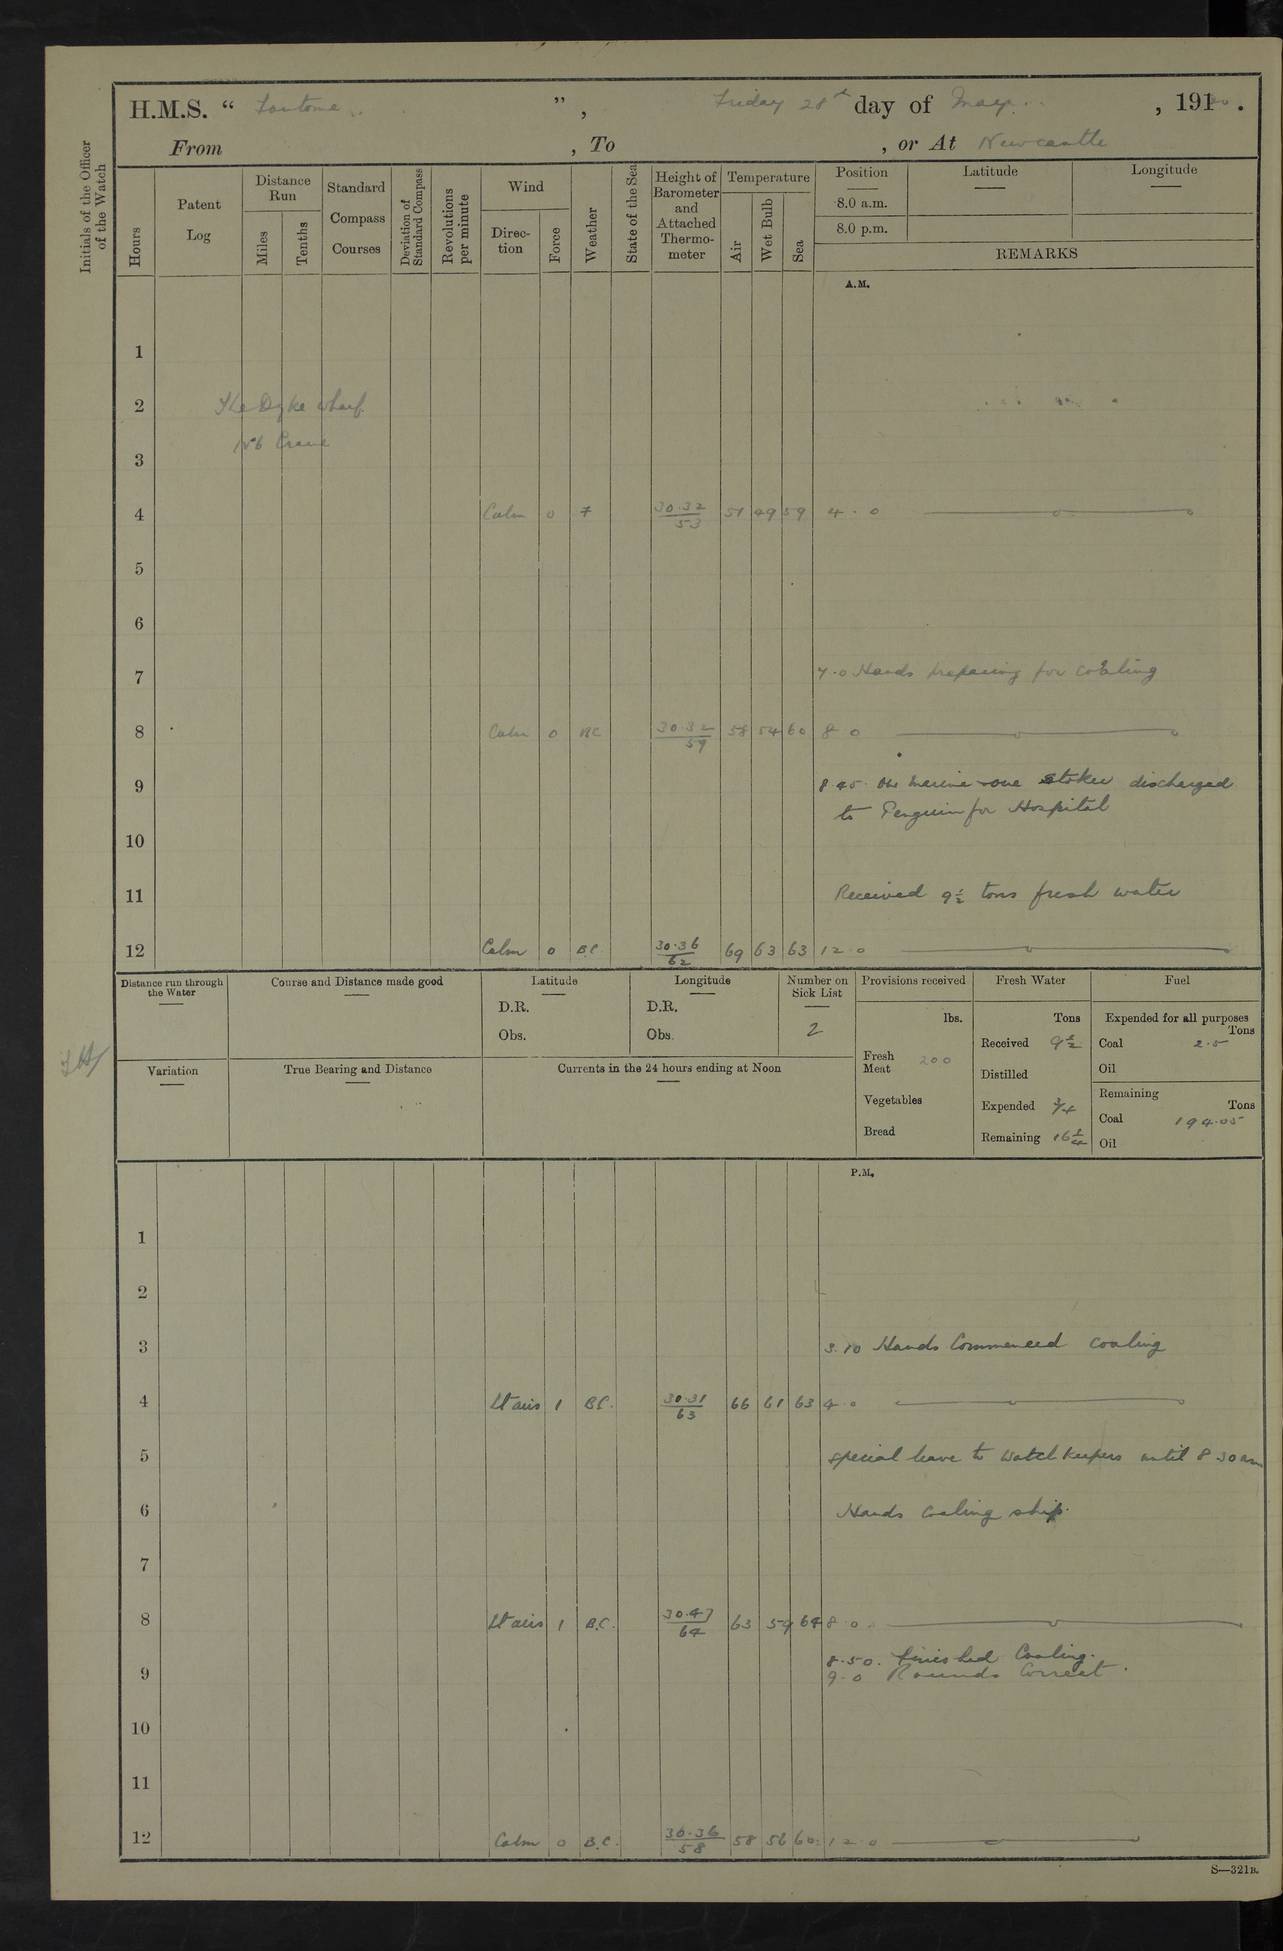 H.M.S. “ Fantome ”, Friday 28th day of May, 1920.
From , To , or At Newcastle
Initials of the Officer of the Watch
Hours
Patent Log
Distance Run
Miles
Tenths
Standard Compass Courses
Deviation of Standard Compass
Revolutions per minute
Wind
Direction
Force
Weather
State of the Sea
Height of Barometer and Attached Thermometer
Temperature
Air
Wet Bulb
Sea
Position
8.0 a.m.
8.0 p.m.
Latitude
Longitude
REMARKS
A.M.
1
2 The Dyke wharf
No 6 Crane
3
4 Calm 0 F 30.32/53 51 49 59 4.0
5
6
7 7.0 Hands preparing for coaling
8 Calm 0 BC 30.32/59 58 54 60 8.0
9 8.45 One marine one stoker discharged
to Penguin for Hospital
10
11 Received 9½ tons fresh water
12 Calm 0 BC 30.36/62 69 63 63 12.0
Distance run through the Water
Course and Distance made good
Latitude
D.R.
Obs.
Longitude
D.R.
Obs.
Number on Sick List
2
Provisions received
lbs.
Fresh Meat 200
Vegetables
Bread
Fresh Water
Tons
Received 9½
Distilled
Expended ¾
Remaining
Fuel
Expended for all purposes
Tons
Coal 2.5
Oil
Remaining
Tons
Coal 194.05
Oil
Variation
True Bearing and Distance
Currents in the 24 hours ending at Noon
P.M.
1
2
3 3.10 Hands Commenced coaling
4 Lt airs 1 BC. 30.31/63 66 61 63 4.0
5 special leave to watch keepers until 8.30 am
6 Hands coaling ship.
7
8 Lt airs 1 B.C. 30.47/64 63 59 64 8.0
8.50. finished Coaling.
9 9.0 Rounds Correct.
10
11
12 Calm 0 B.C. 30.36/58 58 56 60 12.0
S—321B.